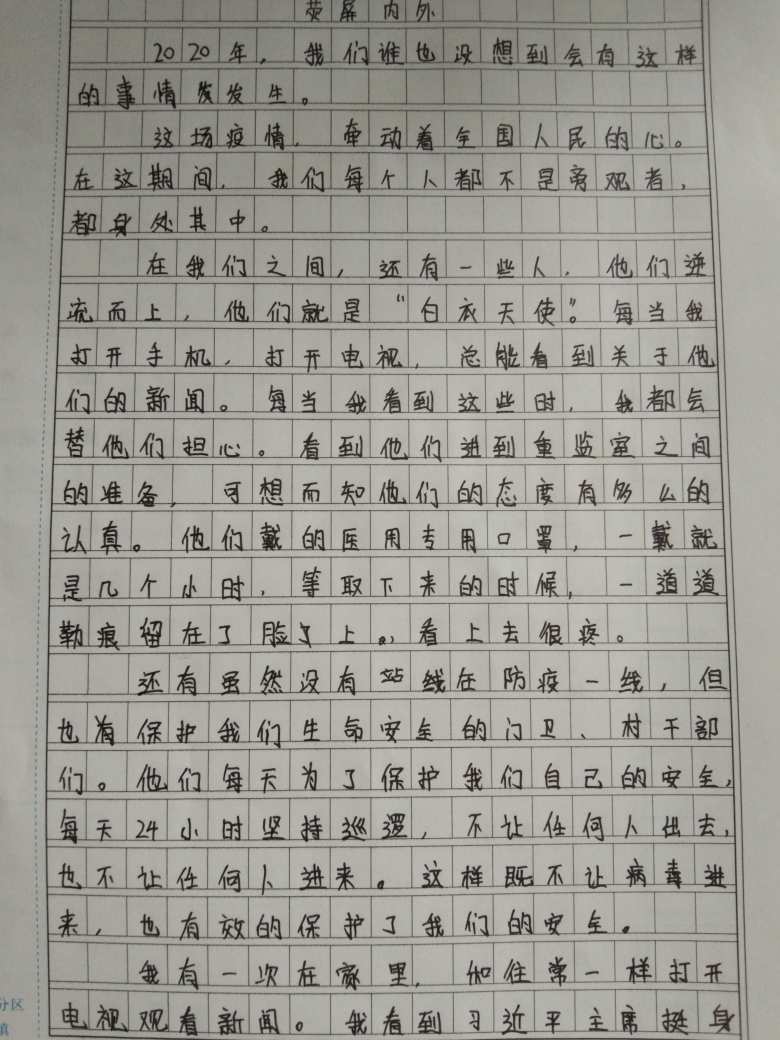 荧屏内外
2020年，我们谁也没想到会有这样
的事情发发生。
这场疫情，牵动着全国人民的心。
在这期间，我们每个人都不是旁观者，
都身处其中。
在我们之间，还有一些人，他们逆
流而上，他们就是“白衣天使”。每当我
打开手机，打开电视，总能看到关于他
们的新闻。每当我看到这些时，我都会
替他们担心。看到他们进到重监室之间
的准备，可想而知他们的态度有多么的
认真。他们戴的医用专用口罩，一戴就
是几个小时，等取下来的时候，一道道
勒痕留在了脸了上，看上去很疼。
还有虽然没有站线在防疫一线，但
也有保护我们生命安全的门卫、村干部
们。他们每天为了保护我们自己的安全，
每天24小时坚持巡逻，不让任何人出去，
也不让任何人进来。这样既不让病毒进
来，也有效的保护了我们的安全。
我有一次在家里，如往常一样打开
电视观看新闻。我看到习近平主席挺身
分区
填